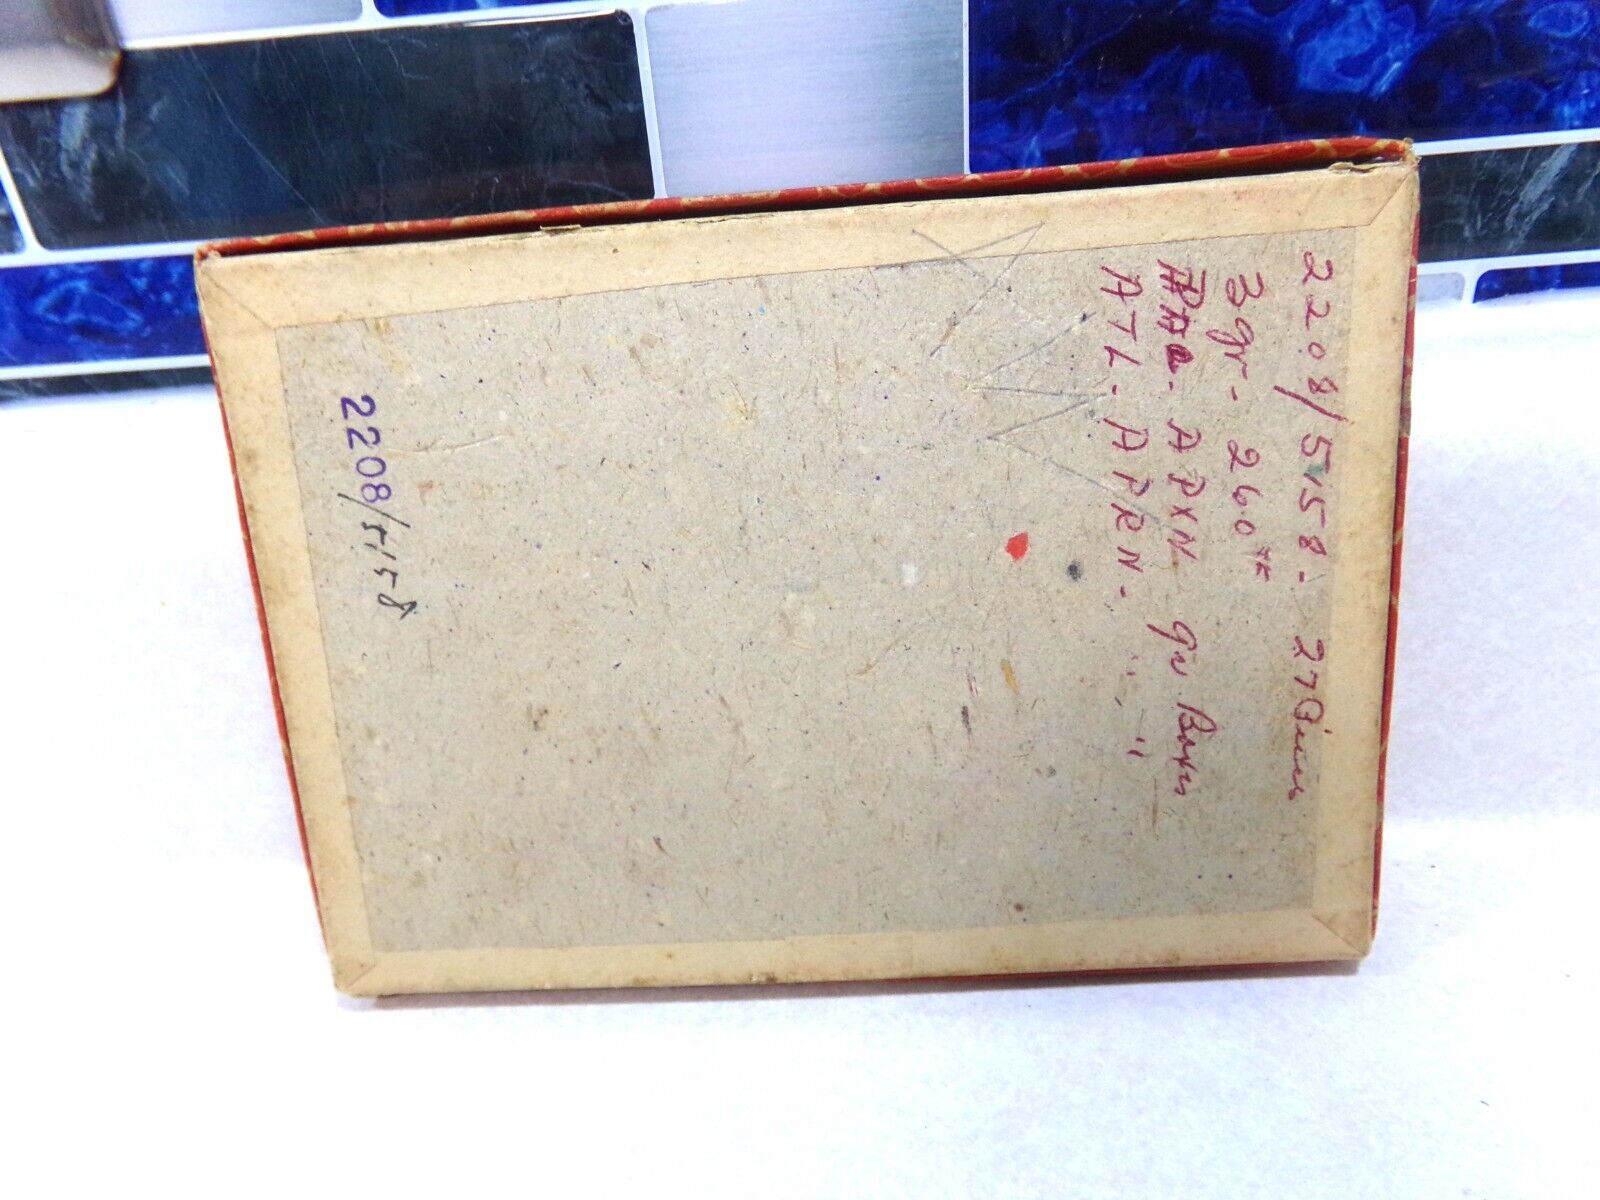 2208/5158. 27
3gr - 260
APXN gr Boxes
ATL. APRN - " "
2208/5158